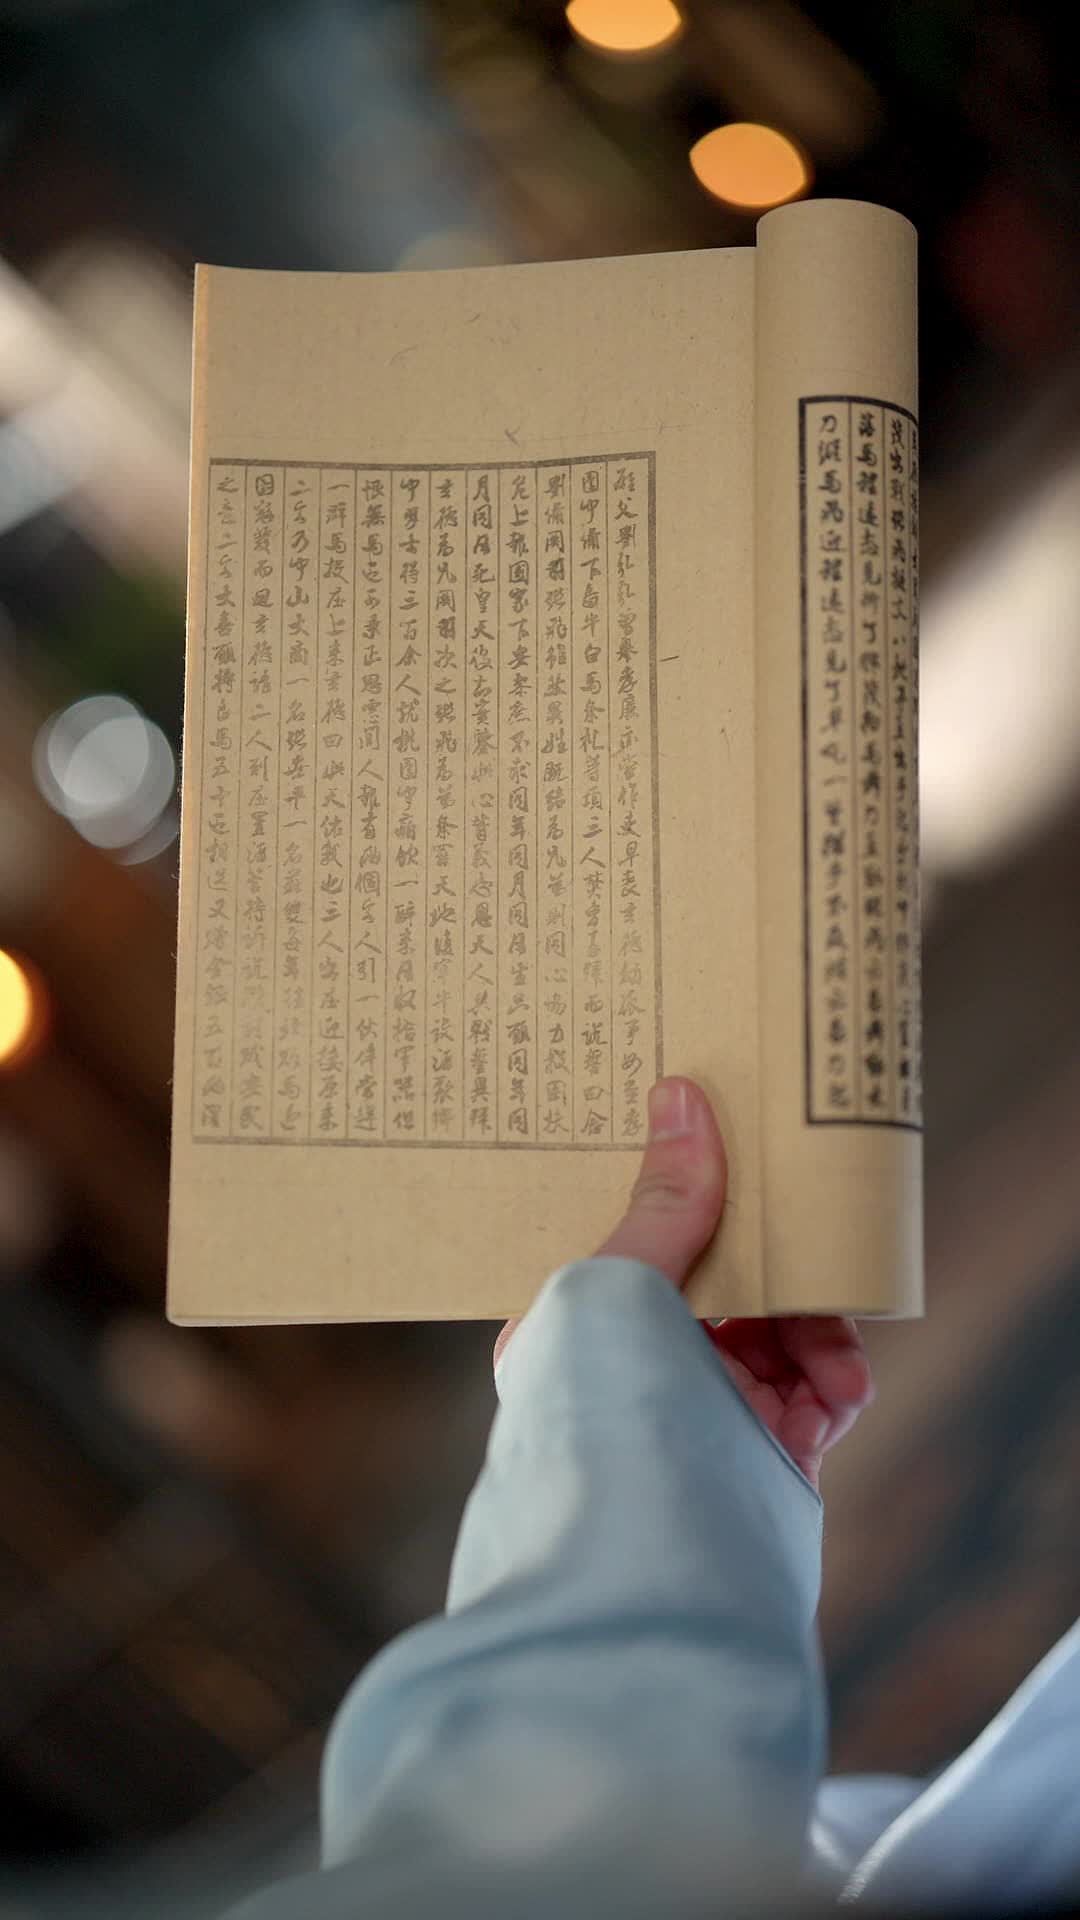 茂出戰張飛挺丈八蛇矛直出手起處刺中鄧茂心窩翻身
落馬程遠志見折了鄧茂拍馬舞刀直取張飛云長舞動大
刀縱馬而迎程遠志見了早吃一驚措手不及被云長刀起
雄父劉弘弘曾舉孝廉亦嘗作吏早喪玄德幼孤事母至孝
園中備下烏牛白馬祭礼等項三人焚香再拜而說誓曰念
劉備關羽張飛雖然異姓既結為兄弟則同心協力救困扶
危上報國家下安黎庶不求同年同月同日生只願同年同
月同日死皇天後土實鑒此心背義忘恩天人共戮誓畢拜
玄德為兄關羽次之張飛為弟祭罷天地復宰牛設酒聚鄉
中勇士得三百余人就桃園中痛飲一醉來日收拾軍器但
恨無馬匹可乘正思慮間人報有兩個客人引一伙伴當趕
一群馬投庄上來玄德曰此天佑我也三人出庄迎接原來
二客乃中山大商一名張世平一名蘇雙每年往北販馬近
因寇發而回玄德請二人到庄置酒管待訴說欲討賊安民
之意二客大喜願將良馬五十匹相送又贈金銀五百兩鑌